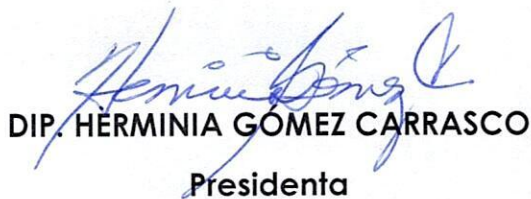 Herminia Gómez C.
DIP. HERMINIA GÓMEZ CARRASCO
Presidenta